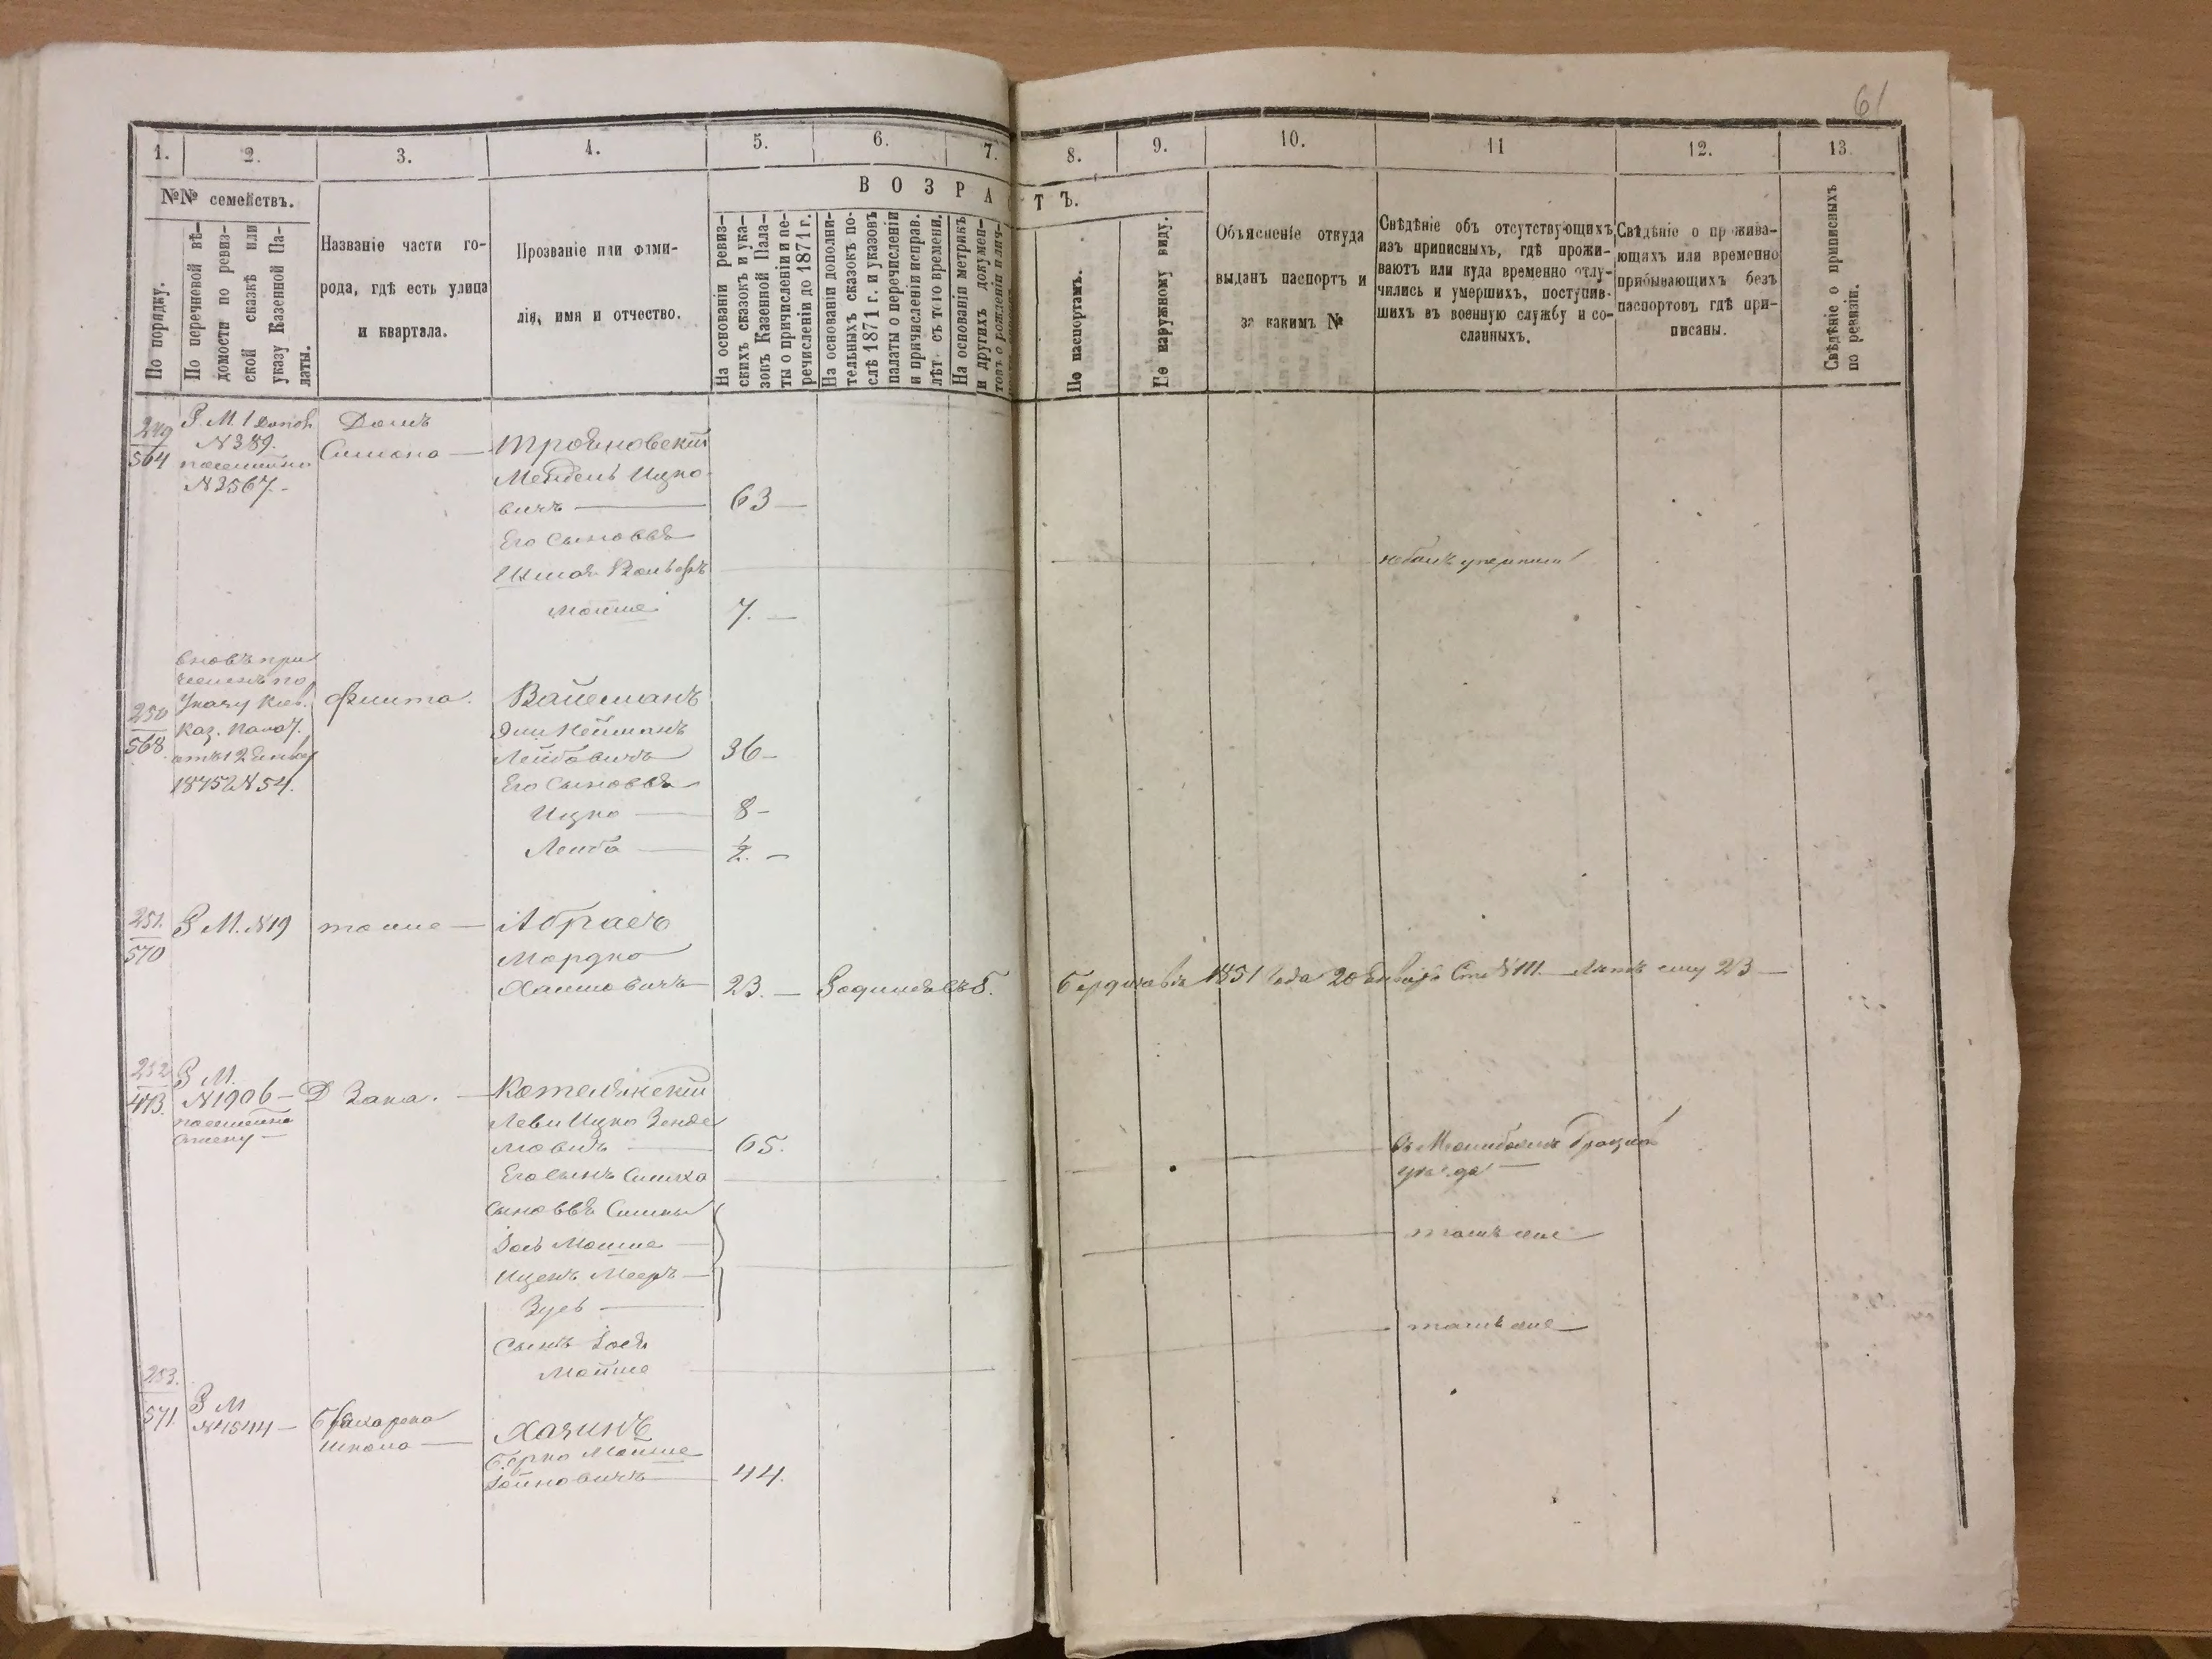 61
1. 2. 3. 4. 5. 6. 7. 8. 9. 10. 11 12. 13.
№№ семействъ.
ВОЗРАСТЪ.
По порядку.
По перечневой вѣ-
домости по ревиз-
ской сказкѣ или
указу Казенной Па-
латы.
Названіе части го-
рода, гдѣ есть улица
и квартала.
Прозваніе или фами-
лія, имя и отчество.
На основаніи ревиз-
скихъ сказокъ и ука-
зокъ Казенной Пала-
ты о причисленіи и пе-
речисленіи до 1871 г.
На основаніи дополни-
тельныхъ сказокъ по-
слѣ 1871 г. и указовъ
палаты о перечисленіи
и причисленіи исправ.
лѣт. съ того времени.
На основаніи метрикъ
и другихъ докумен-
товъ о рожденіи и лич-
По паспортамъ.
По наружному виду.
Объясненіе откуда
выданъ паспортъ и
за какимъ №
Свѣдѣніе объ отсутствующихъ
изъ приписныхъ, гдѣ прожи-
ваютъ или куда временно отлу-
чились и умершихъ, поступив-
шихъ въ военную службу и со-
сланныхъ.
Свѣдѣніе о прожива-
ющихъ или временно
прибывающихъ безъ
паспортовъ гдѣ при-
писаны.
Свѣдѣніе о приписныхъ
по ревизіи.
249
564
N 389.
N 3567.
Домъ
Симона
Трояновскій
Мендель Ицко-
вичъ 63
Его сыновья
Вольфъ
Мошие 7.
250
568
вновь при
Указу Кіев.
Каз. Палат.
отъ 12 Января
1875 г N 54.
Финта.
Вайсманъ
Лейбовичъ 36
Его сыновья
Ицко 8
Лейба ½.
251.
570
З М. N 19
тоже
Абрасъ
Мордко
Хаимовичъ 23. Родился въ Б. Бердичевѣ 1851 года 20 Января Ст. N 111. Лѣтъ ему 23
252
473.
З М.
N 1906
Д Зака.
Котелянскій
Леви Ицко Зенде
ловичъ 65.
Его сынъ Симха
уѣзда
Сыновья Симхи
Іось Мошие
тамъ же
Иценъ Мееръ
Зусь
Сынъ Іося
Мошие
тамъ же
253.
571
З М
N 4544
школа
Хазинъ
Берко Мошие
Іойновичъ 44.